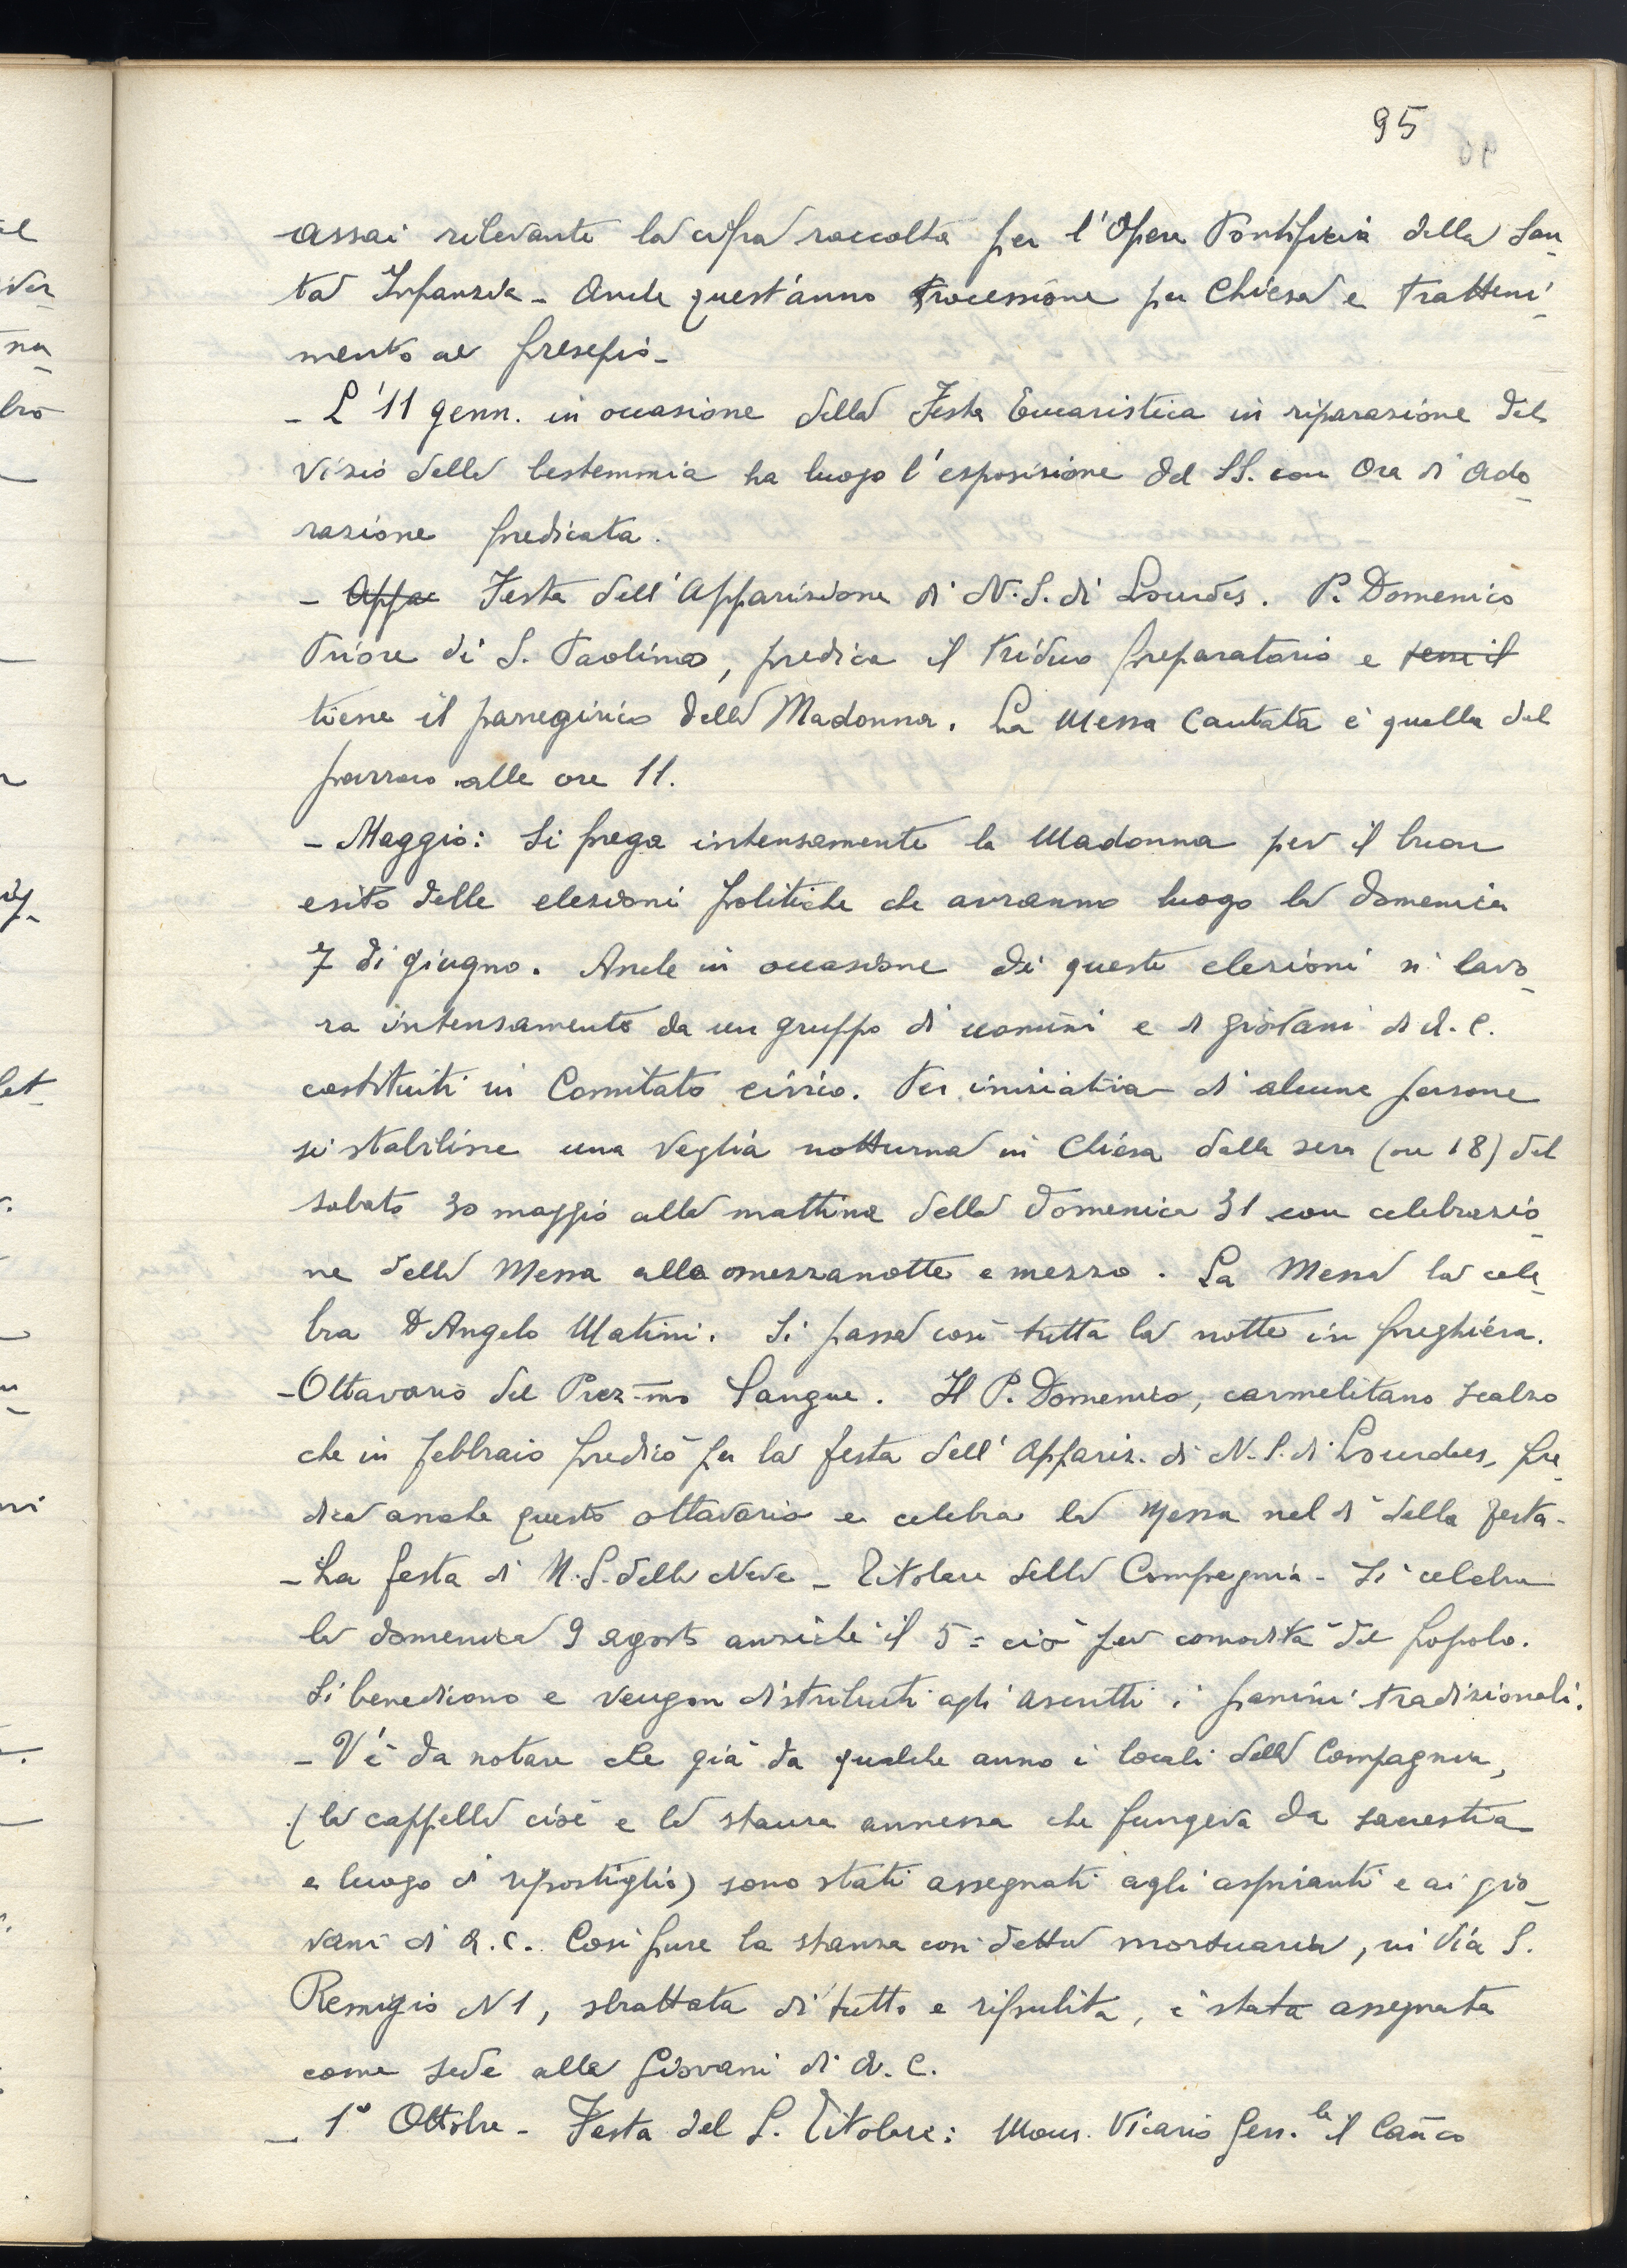 95
assai rilevante la cifra raccolta per l'Opera Pontificia della San-
ta Infanzia - Anche quest'anno Processione per Chiesa e tratteni-
mento al presepio -
- L'11 genn. in occasione della Festa Eucaristica in riparazione del
vizio della bestemmia ha luogo l'esposizione del SS. con Ora di Ado-
razione predicata.
- Appa Festa dell'Apparizione di N.S. di Lourdes. P. Domenico
Priore di S. Paolino, predica il triduo preparatorio e tiene il
tiene il panegirico della Madonna. La Messa Cantata è quella del
parroco alle ore 11.
- Maggio: Si prega intensamente la Madonna per il buon
esito delle elezioni politiche che avranno luogo la domenica
7 di giugno. Anche in occasione di queste elezioni si lavo-
ra intensamente da un gruppo di uomini e di giovani di A.C.
costituiti in Comitato civico. Per iniziativa di alcune persone
si stabilisce una Veglia notturna in Chiesa dalla sera (ore 18) del
sabato 30 maggio alla mattina della Domenica 31 con celebrazio-
ne della Messa alla mezzanotte e mezzo. La Messa la cele-
bra D Angelo Matini. Si passa così tutta la notte in preghiera.
- Ottavario del Prez-mo Sangue. Il P. Domenico, carmelitano scalzo
che in febbraio predicò per la festa dell'Appariz. di N.S. di Lourdes, pre-
dica anche questo ottavario e celebra la Messa nel dì della festa -
- La festa di N.S. della Neve - Titolare della Compagnia - Si celebra
la domenica 9 agosto anziché il 5 = ciò per comodità del popolo.
Si benedicono e vengon distribuiti agli ascritti i panini tradizionali.
- V'è da notare che già da qualche anno i locali della Compagnia,
(la cappella cioè e la stanza annessa che fungeva da sacrestia
e luogo di ripostiglio) sono stati assegnati agli aspiranti e ai gio-
vani di A.C. Così pure la stanza così detta mortuaria, in Via S.
Remigio N 1, sbrattata di tutto e ripulita, è stata assegnata
come sede alla Giovani di A.C.
- 1° Ottobre - Festa del S. Titolare: Mons. Vicario Gen.le il Can̄co